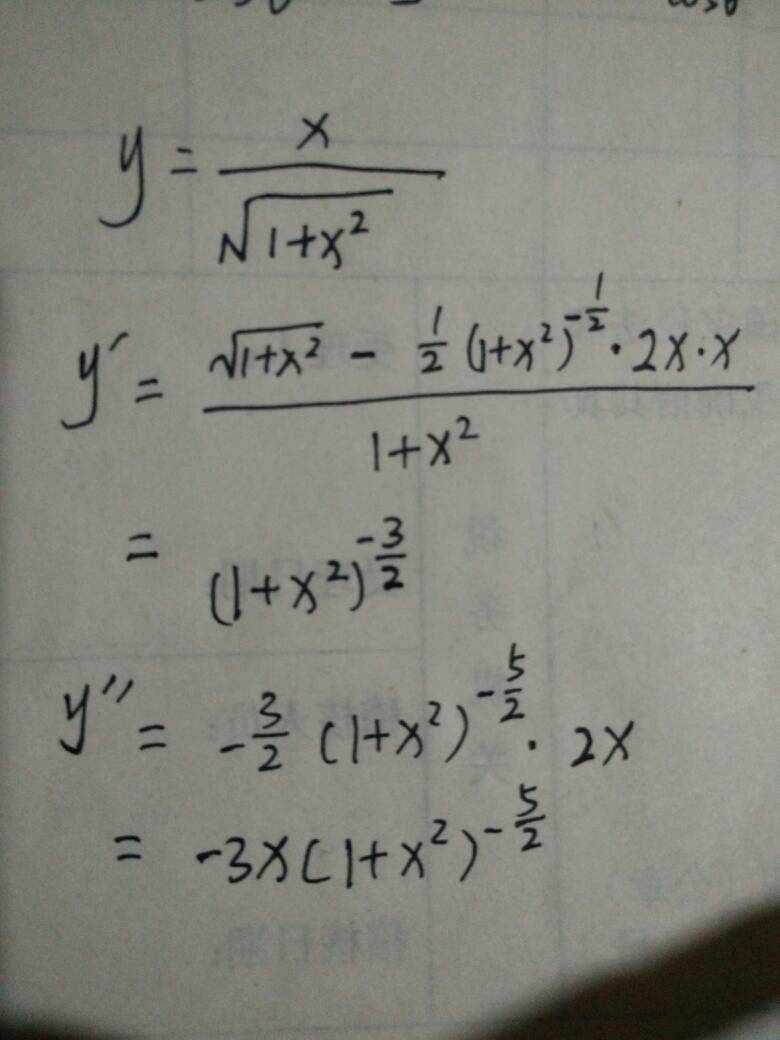 y = x / √(1+x²)
y′ = (√(1+x²) - 1/2 (1+x²)^(-1/2) · 2x·x) / (1+x²)
= (1+x²)^(-3/2)
y″ = -3/2 (1+x²)^(-5/2) · 2x
= -3x(1+x²)^(-5/2)